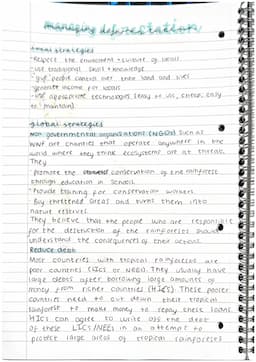 managing deforestation
local strategies
- Respect the environment + culture of locals
- use traditional skills + knowledge
- give people control over their land and lives
- generate income for locals
- use appropriate technologies (easy to use, cheap, easy
to maintain)
global strategies
non governmental organisations (NGOs) such as
WWF are charities that operate anywhere in the
world where they think ecosystems are at threat.
They
- promote the conservation of the rainforests
through education in schools
- Provide training for conservation workers
- Buy threatened areas and turn them into
nature reserves
They believe that the people who are responsible
for the destruction of the rainforests should
understand the consequences of their actions
Reduce debt
Most countries with tropical rainforests are
poor countries (LICs or NEEs). They usually have
large debts after borrowing large amounts of
money from richer countries (HICs). These poorer
countries need to cut down their tropical
rainforest to make money to repay these loans.
HICs can agree to write off the debt
of these LICs/NEEs in an attempt to
protect large areas of tropical rainforests